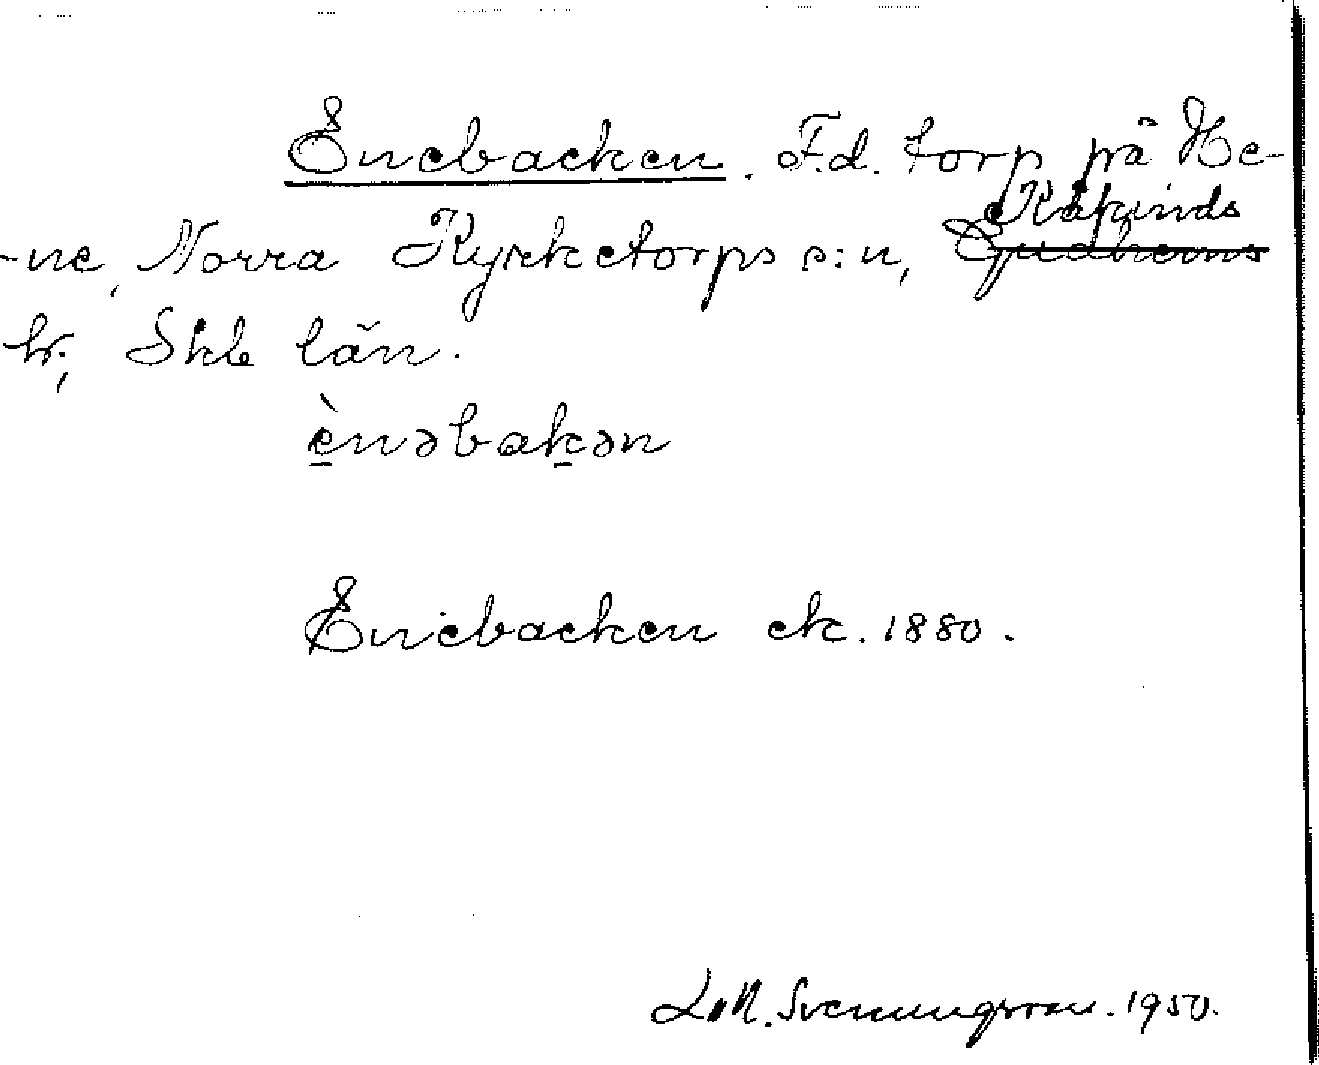 Enebacken. F.d. torp på He-
Kåkinds
-ne, Norra Kyrketorps s:n, Gudhems
h; Skb län.
ènəbakən
Enebacken ek. 1880.
Svenningsson. 1950.